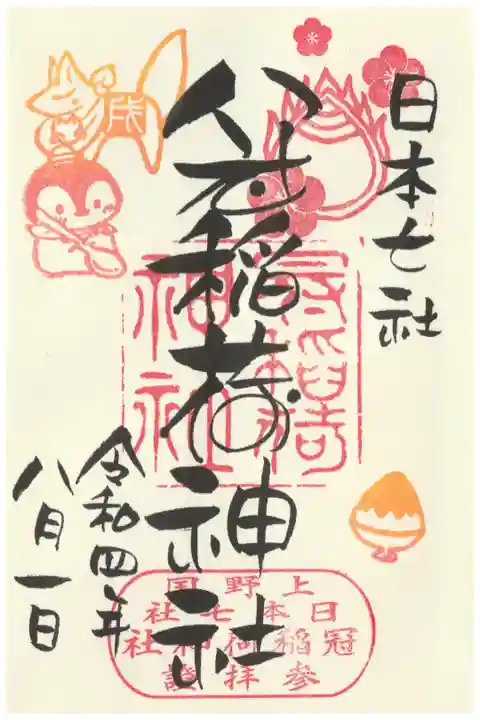 日本七社
冠稲荷神社
令和四年
八月一日
戌
冠稲荷
神社
上野国
日本七社
冠稲荷神社
参拝證